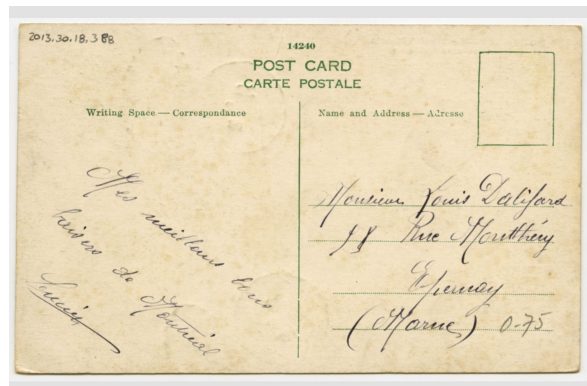 2013.30.18.388
14240
POST CARD
CARTE POSTALE
Writing Space — Correspondance
Name and Address — Adresse
Mes meilleurs bons
baisers de Montréal
Lucien
Monsieur Louis Dalifard
Rue Montlhéry
Epernay
(Marne) 0-75